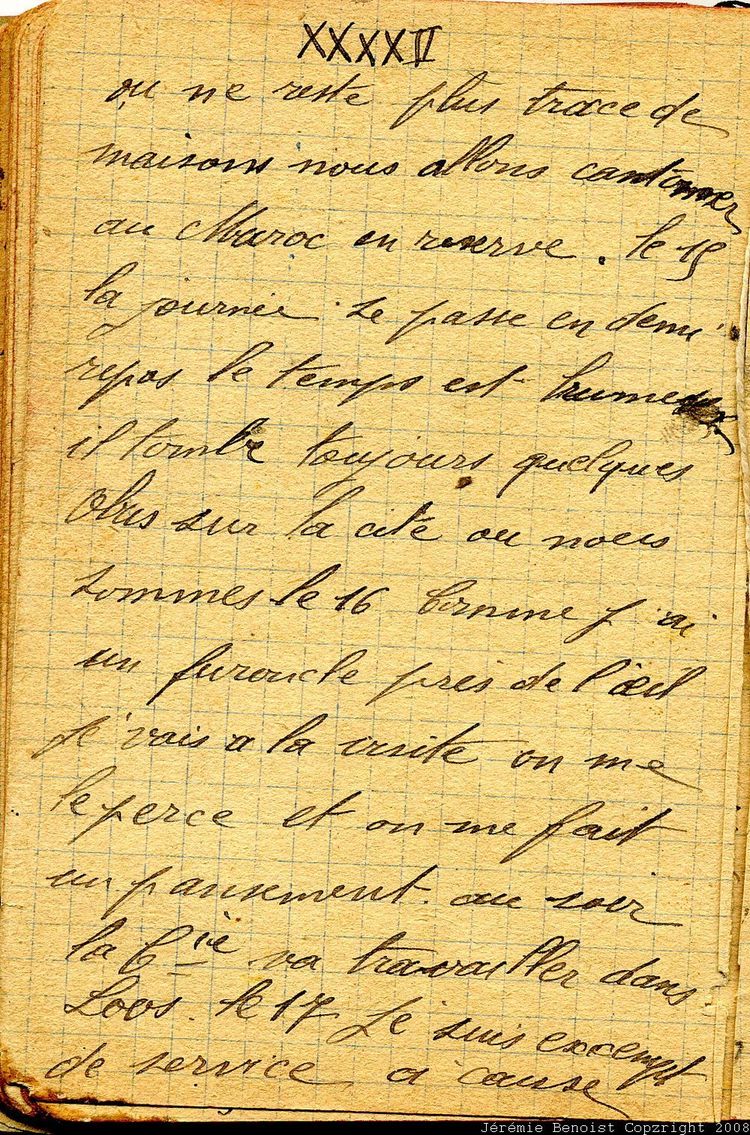 XXXXIV
ou ne reste plus trace de
maisons nous allons cantonner
au Maroc en reserve. le 15
la journée se passe en demi
repos le temps est brumeux
il tombe toujours quelques
Obus sur la cité ou nous
sommes le 16 comme j'ai
un furoncle près de l'œil
Je vais a la visite on me
le perce et on me fait
un pansement. au soir
la Cie va travailler dans
Loos. le 17 Je suis excempt
de service a cause
Jérémie Benoist Copzright 2008